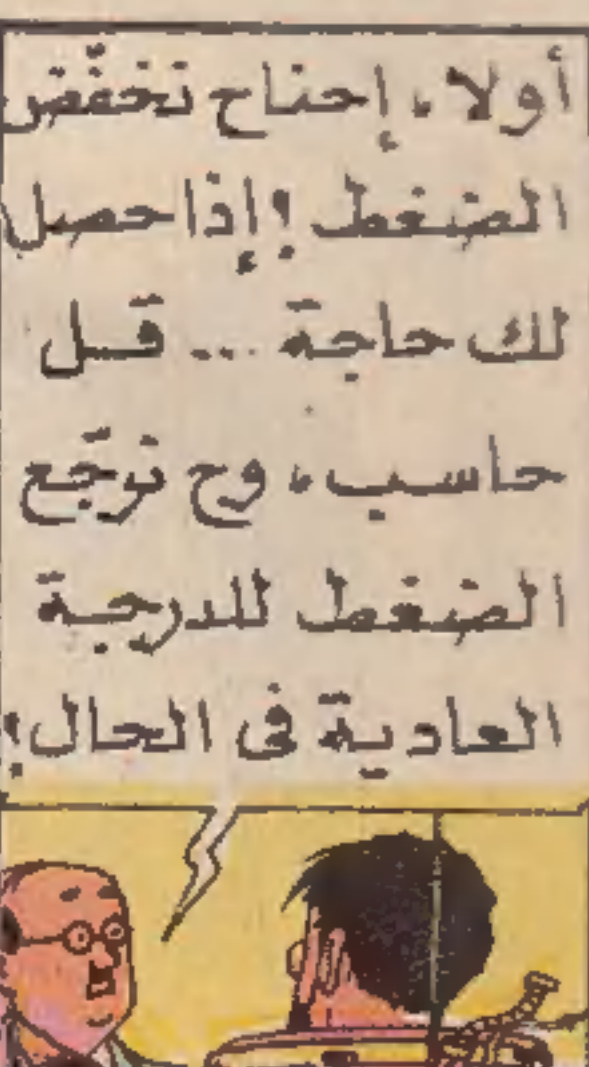 أولا، إحناح نخفّض
الضغط! إذا حصل
لك حاجة ... قل
حاسب، وح نرجّع
الضغط للدرجة
العادية فى الحال!